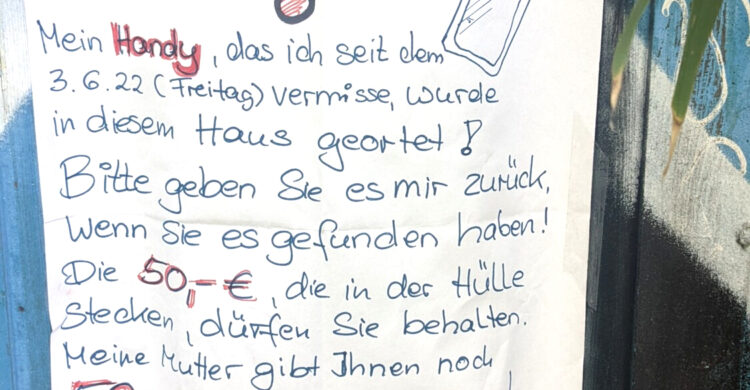 Mein Handy, das ich seit dem
3.6.22 (Freitag) vermisse, wurde
in diesem Haus geortet!
Bitte geben Sie es mir zurück,
wenn Sie es gefunden haben!
Die 50,- €, die in der Hülle
stecken, dürfen Sie behalten.
Meine Mutter gibt Ihnen noch